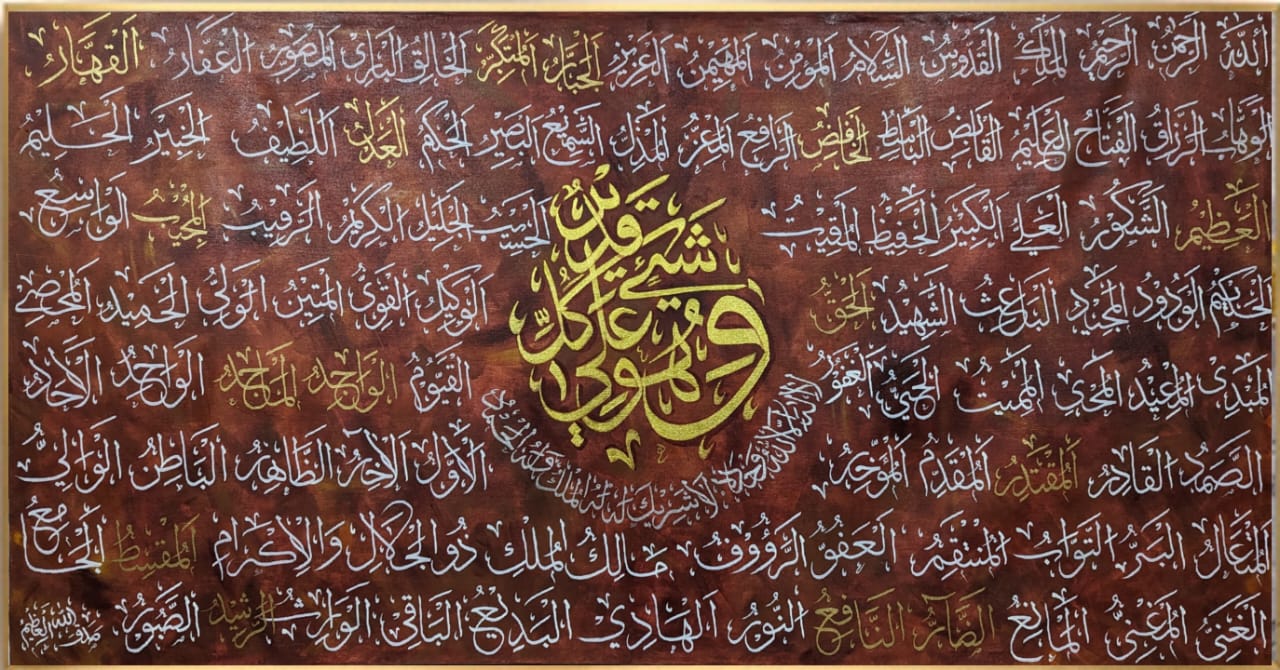 الله الرحمن الرحيم الملك القدوس السلام المؤمن المهيمن العزيز الجبار المتكبر الخالق البارئ المصور الغفار القهار
الوهاب الرزاق الفتاح العليم القابض الباسط الخافض الرافع المعز المذل السميع البصير الحكم العدل اللطيف الخبير الحليم
العظيم الشكور العلي الكبير الحفيظ المقيت الحسيب الجليل الكريم الرقيب المجيب الواسع
الحكيم الودود المجيد الباعث الشهيد الحق الوكيل القوي المتين الولي الحميد المحصي
المبدئ المعيد المحي المميت الحي الغفور القيوم الواجد الماجد الواحد الأحد
الصمد القادر المقتدر المقدم المؤخر الأول الآخر الظاهر الباطن الوالي
المتعال البر التواب المنتقم العفو الرؤوف مالك الملك ذو الجلال والإكرام المقسط الجامع
الغني المغني المانع الضآر النافع النور الهادي البديع الباقي الوارث الرشيد الصبور
صدق الله العظيم
لا إله إلا الله وحده لا شريك له له الملك وله الحمد
وهو على كل شيء قدير